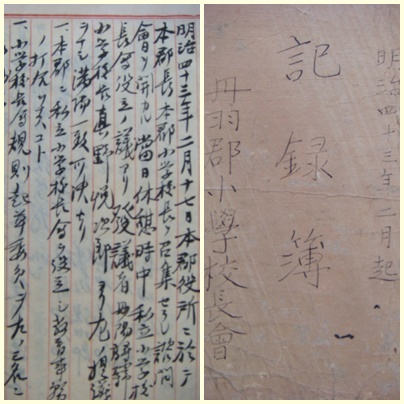 明治四十三年二月起
記録簿
丹羽郡小學校長會
明治四十三年二月十七日本郡役所ニ於テ
本郡長本郡小学校長ヲ召集セラレ諮問
會ヲ開カル當日休憩時中私立小学校
長會設立ノ議アリ發議者丹陽尋常
小学校長真野悦次郎ヨリ左ノ提議
ヲナシ満場可決セリ
一、本郡ニ私立小学校長会ヲ設立シ教育事務
ノ打合ヲ
一、小学校長會規則起草委員